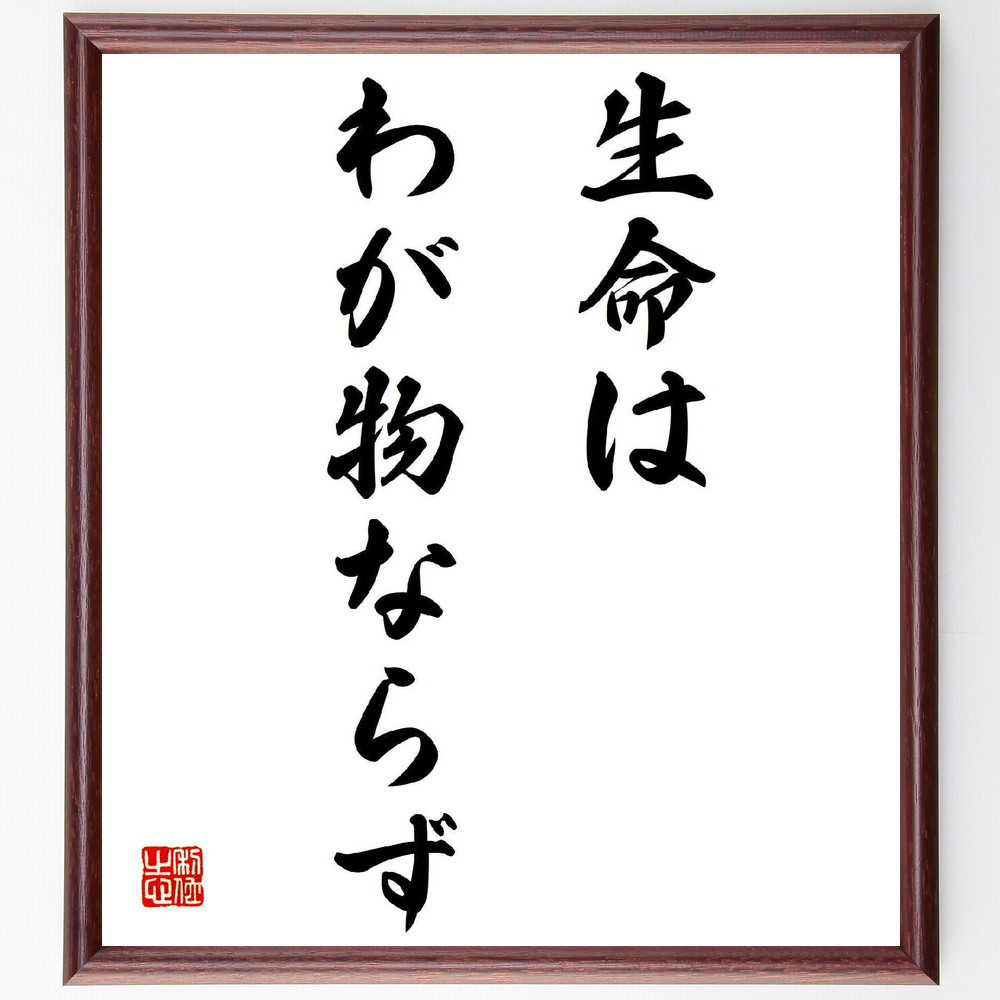 生命は
わが物ならず